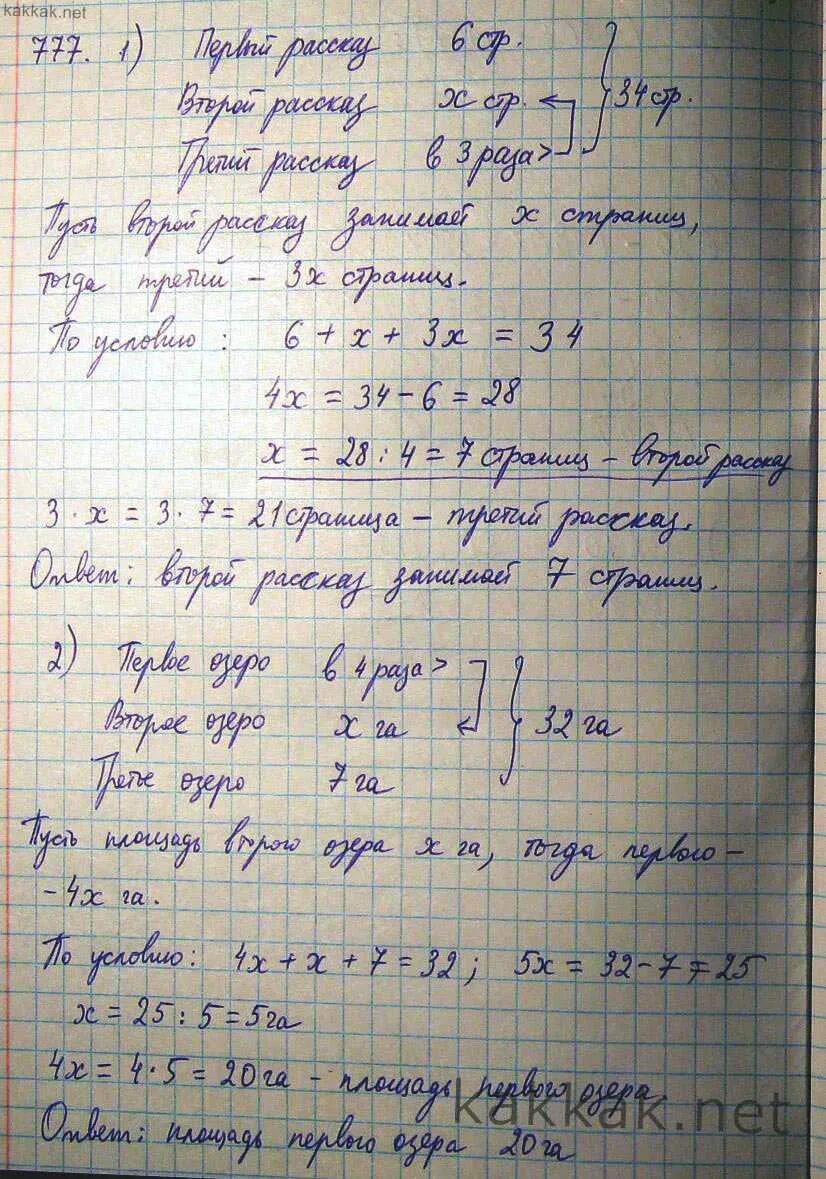 kakkak.net
777. 1) Первый рассказ 6 стр.
Второй рассказ x стр. 34 стр.
Третий рассказ в 3 раза >
Пусть второй рассказ занимает x страниц,
тогда третий - 3x страниц.
По условию: 6 + x + 3x = 34
4x = 34 - 6 = 28
x = 28 : 4 = 7 страниц - второй рассказ
3 · x = 3 · 7 = 21 страница - третий рассказ.
Ответ: второй рассказ занимает 7 страниц.
2) Первое озеро в 4 раза >
Второе озеро x га 32 га
Третье озеро 7 га
Пусть площадь второго озера x га, тогда первого -
- 4x га.
По условию: 4x + x + 7 = 32; 5x = 32 - 7 = 25
x = 25 : 5 = 5 га
4x = 4 · 5 = 20 га - площадь первого озера
kakkak.net
Ответ: площадь первого озера 20 га